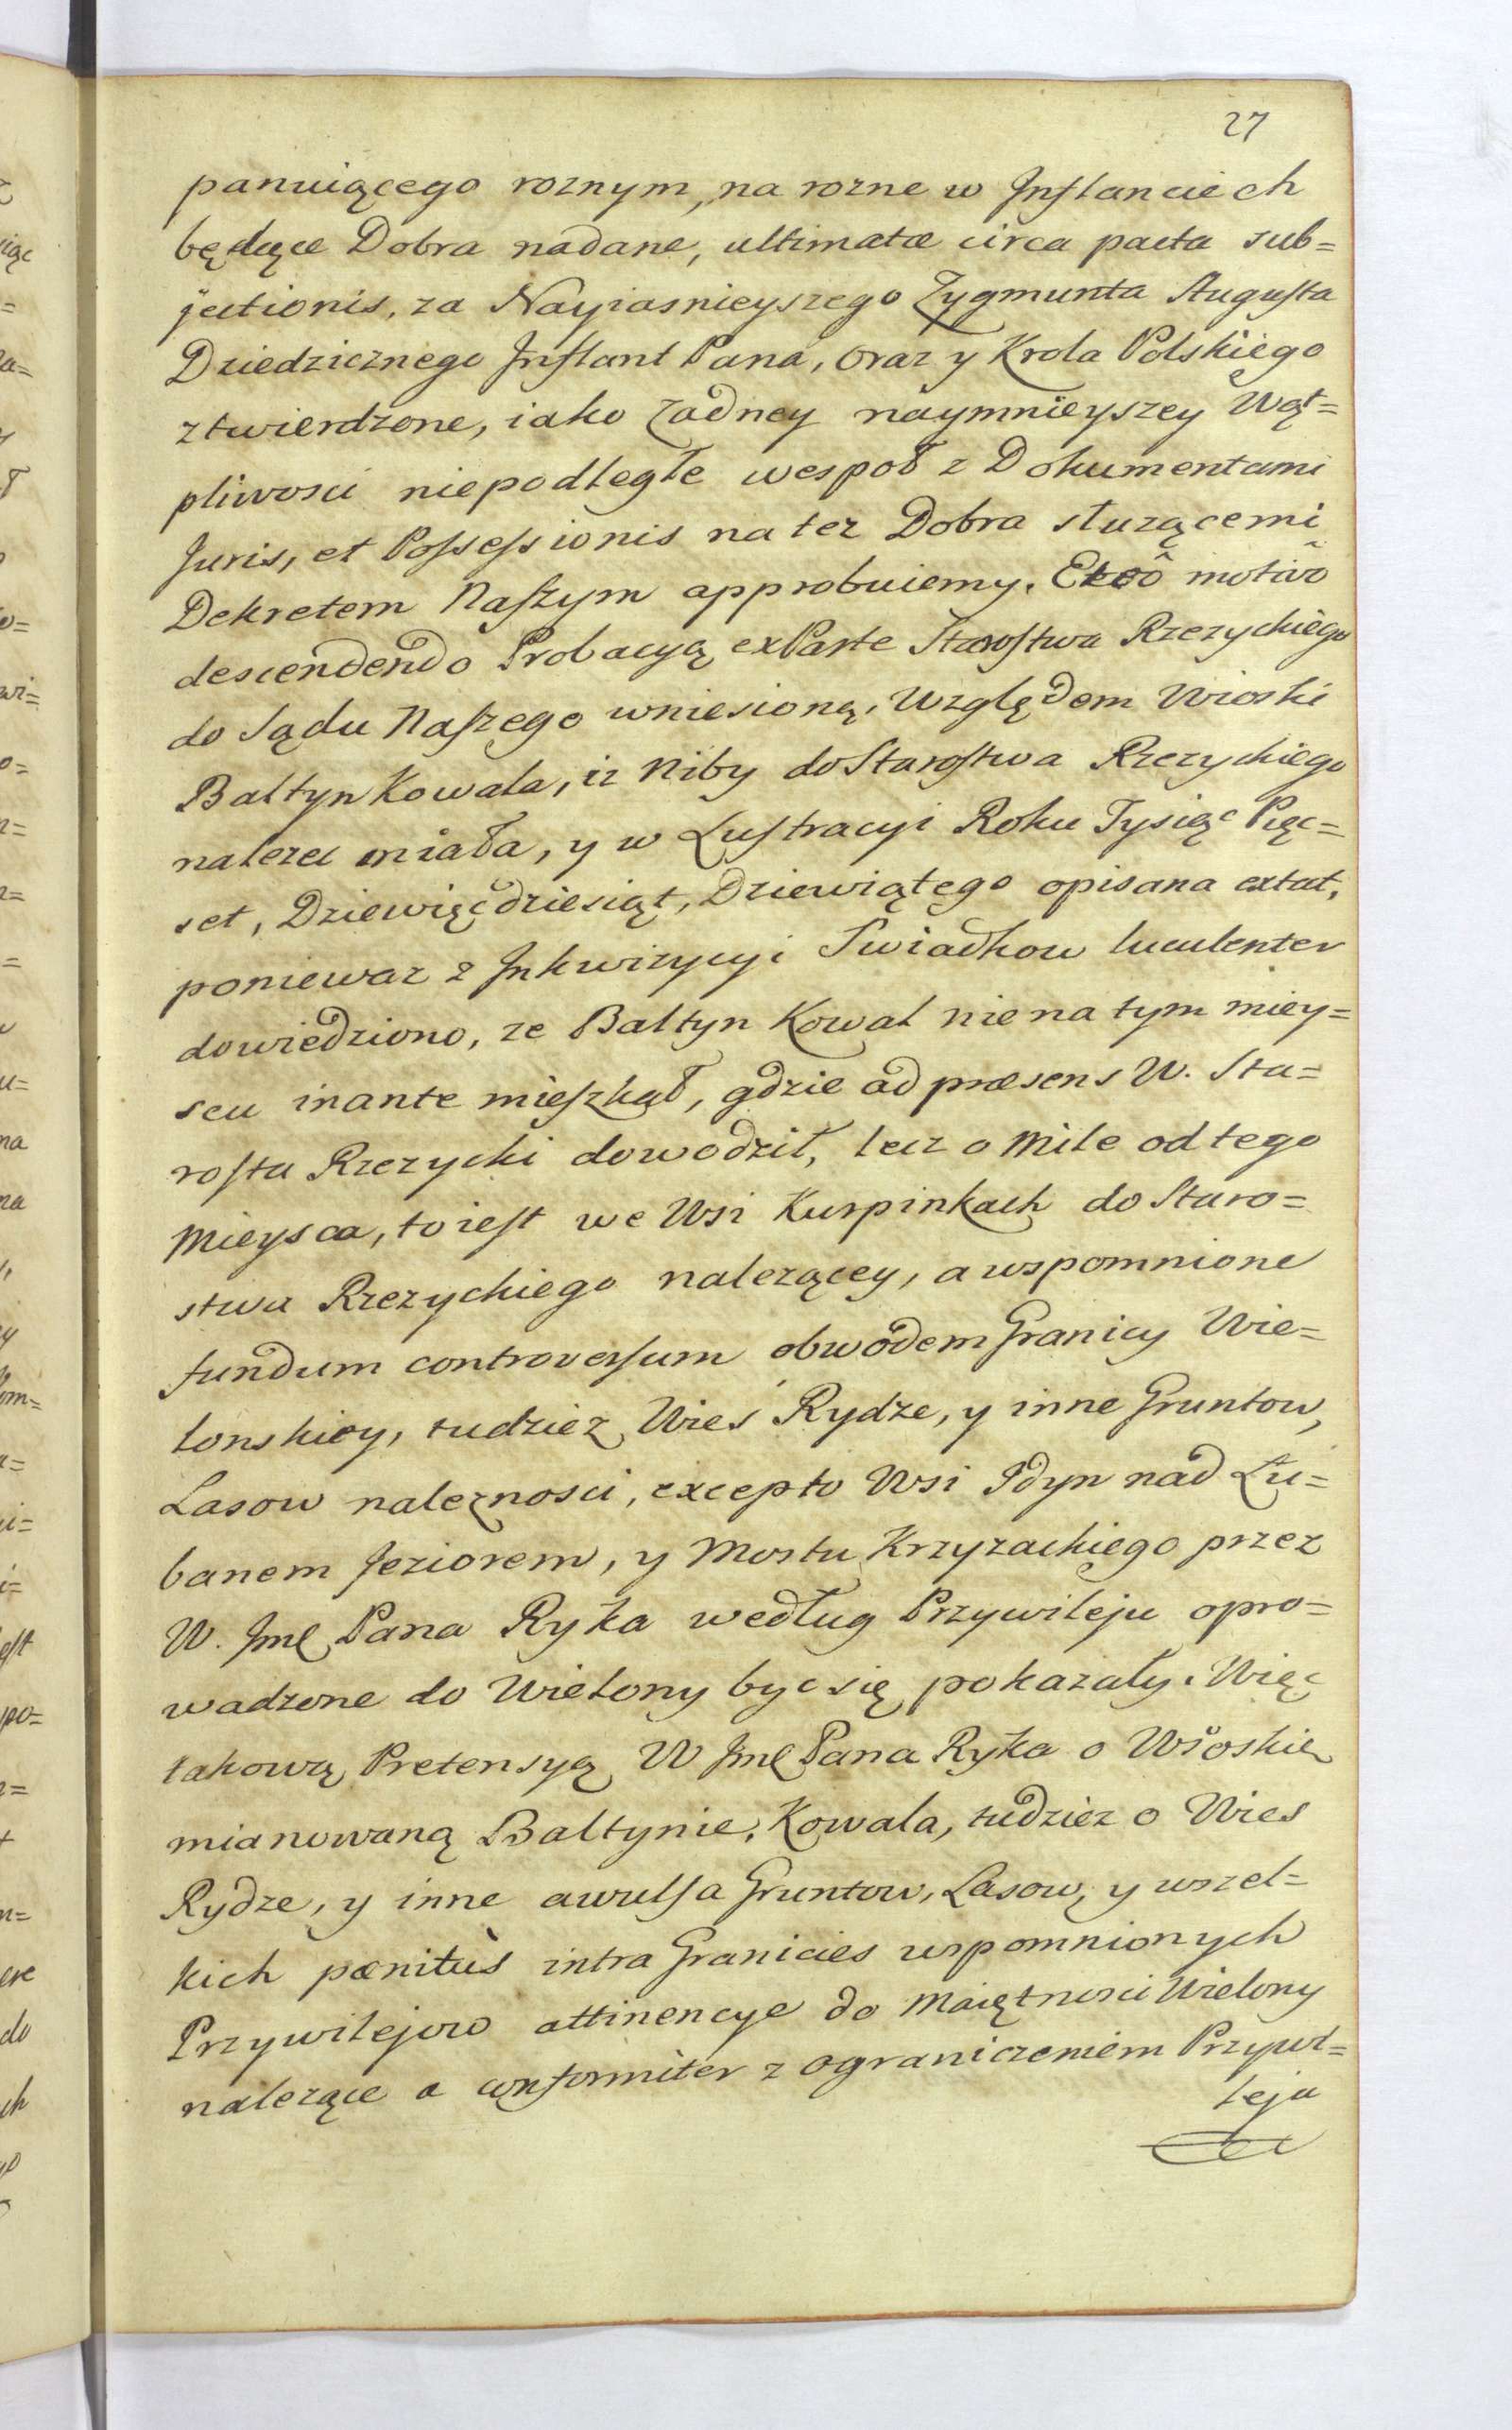 27
panuiącego roznym, na rozne w Inflanciech
będące Dobra nadane, ultimatæ circa pacta sub=
jectionis, za Nayiasnieyszego Zygmunta Augusta
Dziedzicznego Inflant Pana, oraz y Krola Polskiego
ztwierdzone, iako żadney naymnieyszey Wąt=
pliwosci niepodległe wespoł z Dokumentami
Juris, et Possessionis na tez Dobra słuzącemi
Dekretem Naszym approbuiemy. motivo
descendendo Probacyą ex Parte Starostwa Rzezyckiego
do Sądu Naszego wniesioną, Względem Wioski
Baltyn Kowala, iz Niby do Starostwa Rzezyckiego
nalezec miała, y w Lustracyi Roku Tysiąc Pięc=
set, Dziewięcdziesiąt, Dziewiątego opisana extat,
poniewaz z Inkwizycyi Swiadkow luculenter
dowiedziono, ze Baltyn Kowal nie na tym miey=
scu inante mieszkał, gdzie ad præsens W. Sta=
rosta Rzezycki dowodził, lecz o Mile od tego
Mieysca, to iest we Wsi Kurpinkach do Staro=
stwa Rzezyckiego nalezącey, a wspomnione
fundum controversum obwodem Granicy Wie=
lonskiey, tudziez Wieś Rydze, y inne Gruntow,
Lasow naleznosci, excepto Wsi Idyn nad Łu=
banem Jeziorem, y Mostu Krzyzackiego przez
W. Jmć Pana Ryka według Przywileju opro=
wadzone do Wielony byc się pokazały. Więc
takową Pretensyą W Jmć Pana Ryka o Wioskię
mianowaną Baltynie, Kowala, tudziez o Wies
Rydze, y inne awulsa Gruntow, Lasow, y wszel=
kich pænitùs intra Granicies wspomnionych
Przywilejow attinencye do Maiętnosci Wielony
nalezące a conformiter z ograniczeniem Przywi=
leja